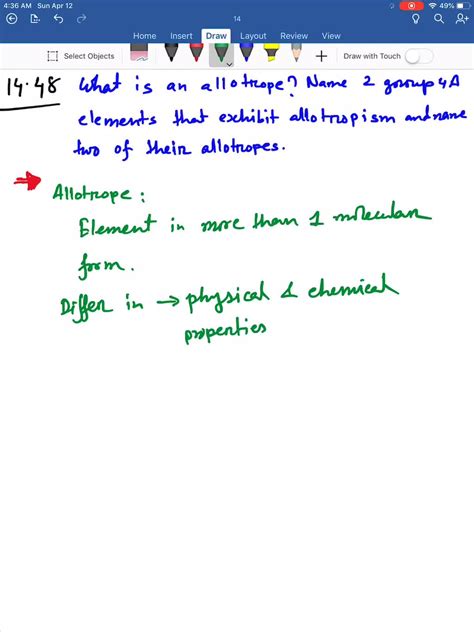 4:36 AM Sun Apr 12
49%
14
Home Insert Draw Layout Review View
Select Objects
Draw with Touch
14.48 What is an allotrope? Name 2 group 4A
elements that exhibit allotropism and name
two of their allotropes.
Allotrope :
Element in more than 1 molecular
form.
Differ in → physical & chemical
properties